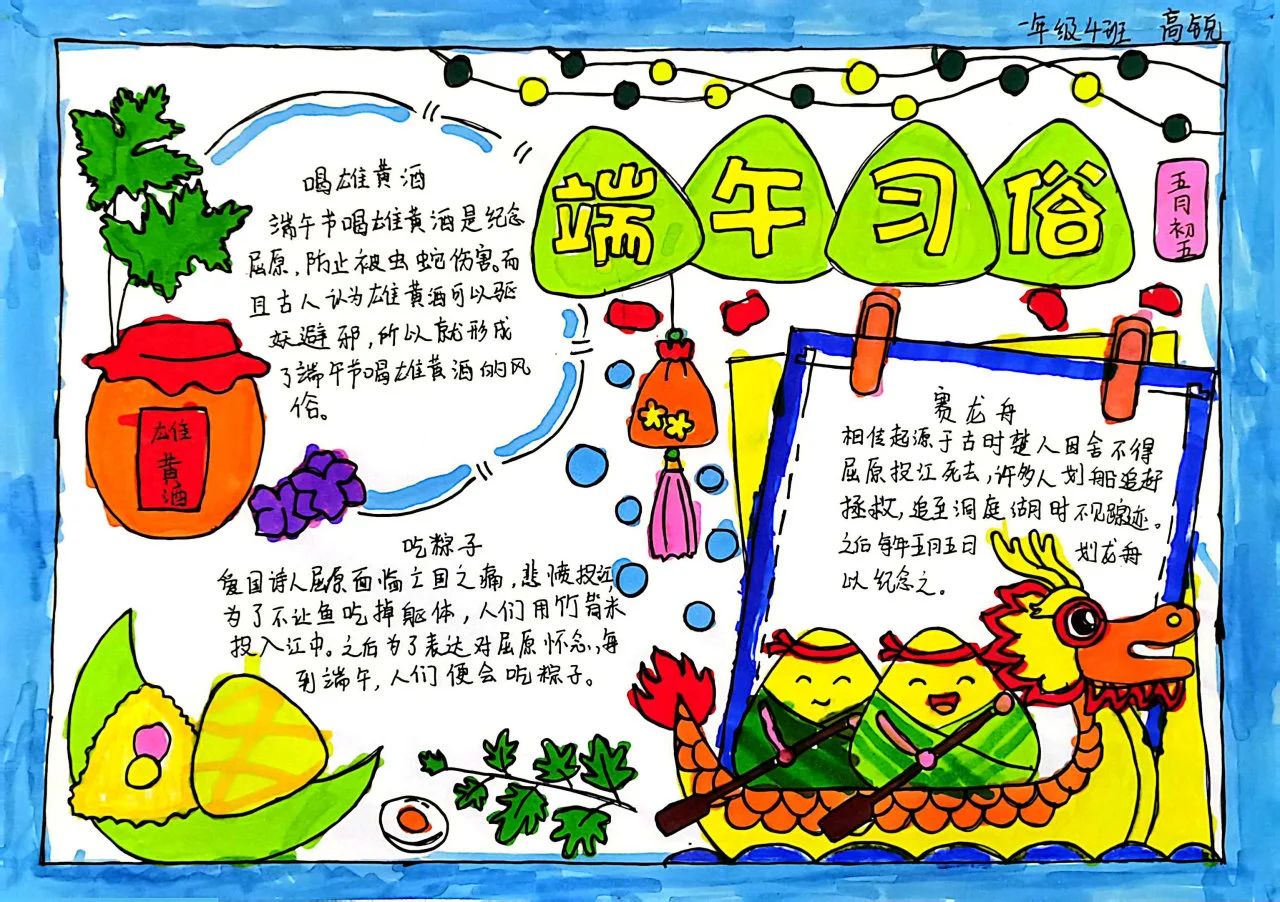 一年级4班 高锐
端午习俗
五月初五
喝雄黄酒
端午节喝雄黄酒是纪念
屈原,防止被虫蛇伤害。而
且古人认为雄黄酒可以驱
妖避邪,所以就形成
了端午节喝雄黄酒的风
俗。
雄黄酒
赛龙舟
相传起源于古时楚人因舍不得
屈原投江死去,许多人划船追赶
拯救,追至洞庭湖时不见踪迹。
之后每年五月五日 划龙舟
以纪念之。
吃粽子
爱国诗人屈原面临亡国之痛,悲愤投江,
为了不让鱼吃掉躯体,人们用竹筒米
投入江中。之后为了表达对屈原怀念,每
到端午,人们便会吃粽子。